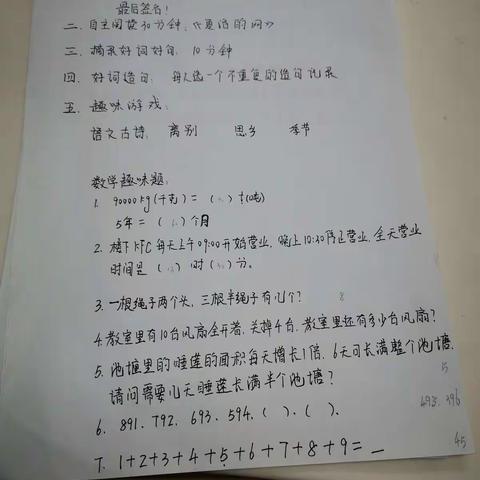 最后签名!
二、自主阅读30分钟,《夏洛的网》
三、摘录好词好句,10分钟
四、好词造句,每人选一个不重复的造句记录
五、趣味游戏:
语文古诗: 离别 思乡 季节
数学趣味题:
1. 90000kg(千克)=( )t(吨)
5年=( )个月
2. 楼下KFC每天上午09:00开始营业,晚上10:30停止营业,全天营业
时间是( )时( )分。
3. 一根绳子两个头,三根半绳子有几个? 8
4. 教室里有10台风扇全开着,关掉4台,教室里还有多少台风扇?
5. 池塘里的睡莲的面积每天增长1倍,6天可长满整个池塘,
请问需要几天睡莲长满半个池塘? 5
6. 891. 792. 693. 594. ( ). ( ). 495. 396
7. 1+2+3+4+5+6+7+8+9= 45